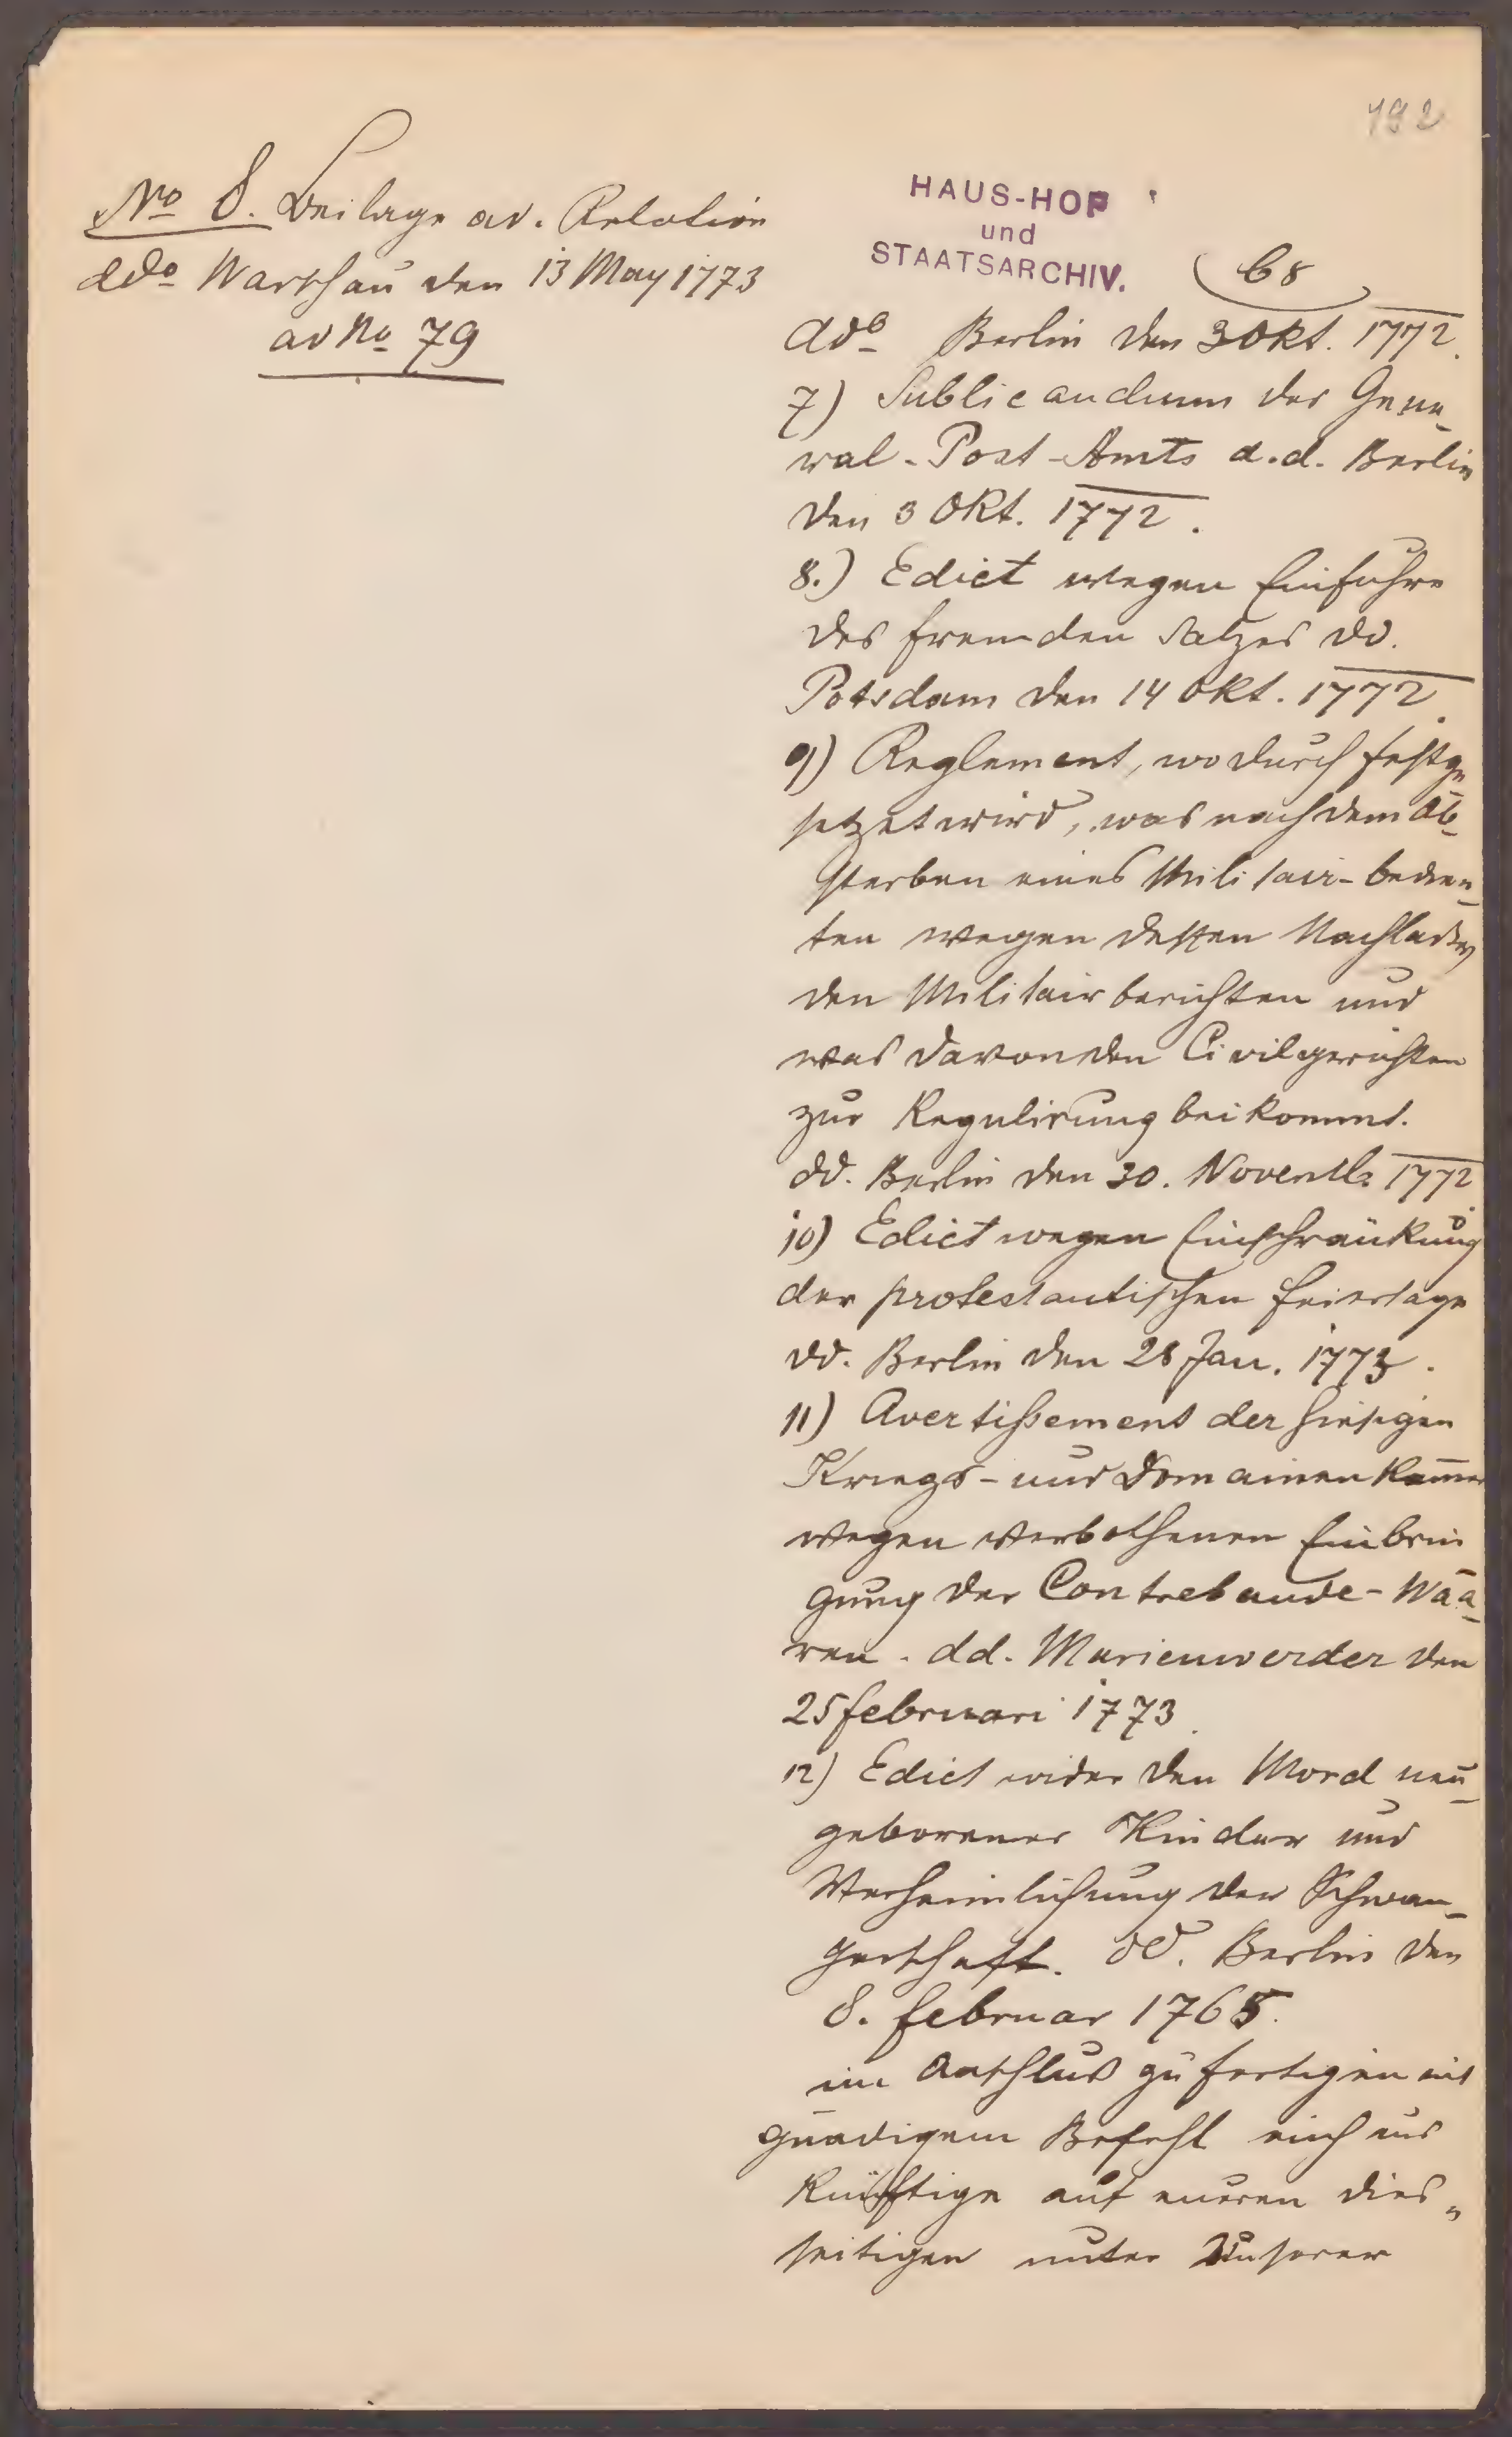 192
No 8. Beilage ad. Relation
ddo Warschau den 13 May 1773
ad No 79
HAUS-HOF
und
STAATSARCHIV.
68
ddo Berlin den 3 Okt. 1772.
7) Publicandum des Gene-
ral-Post-Amts d.d. Berlin
den 3 Okt. 1772.
8.) Edict wegen Einfuhre
des fremden Salzes dd.
Potsdam den 14 Okt. 1772.
9) Reglement, wodurch festge-
setzet wird, was nach dem Ab-
sterben eines Militair-bedien-
ten wegen dessen Nachlasses
den Militair berichten und
was davon den Civilgerichten
zur Regulirung beikommt.
dd. Berlin den 30. Novemb. 1772.
10) Edict wegen Einschränkung
der protestantischen Feiertage
dd. Berlin den 28 Jan. 1773.
11) Avertißement der hiesigen
Kriegs- und Domainen Kam̅er
wegen verbothenen Einbrin-
gung der Contrebande-Waa-
ren. dd. Marienwerder den
25 februari 1773.
12) Edict wider den Mord neu-
geborener Kinder und
Verheimlichung der Schwan-
gerschaft. dd. Berlin den
8. februar 1765.
im Anschluß zu fertigen mit
gnädigem Befehl euch aus
künftige auf eueren dies-
seitigen unter Unserer